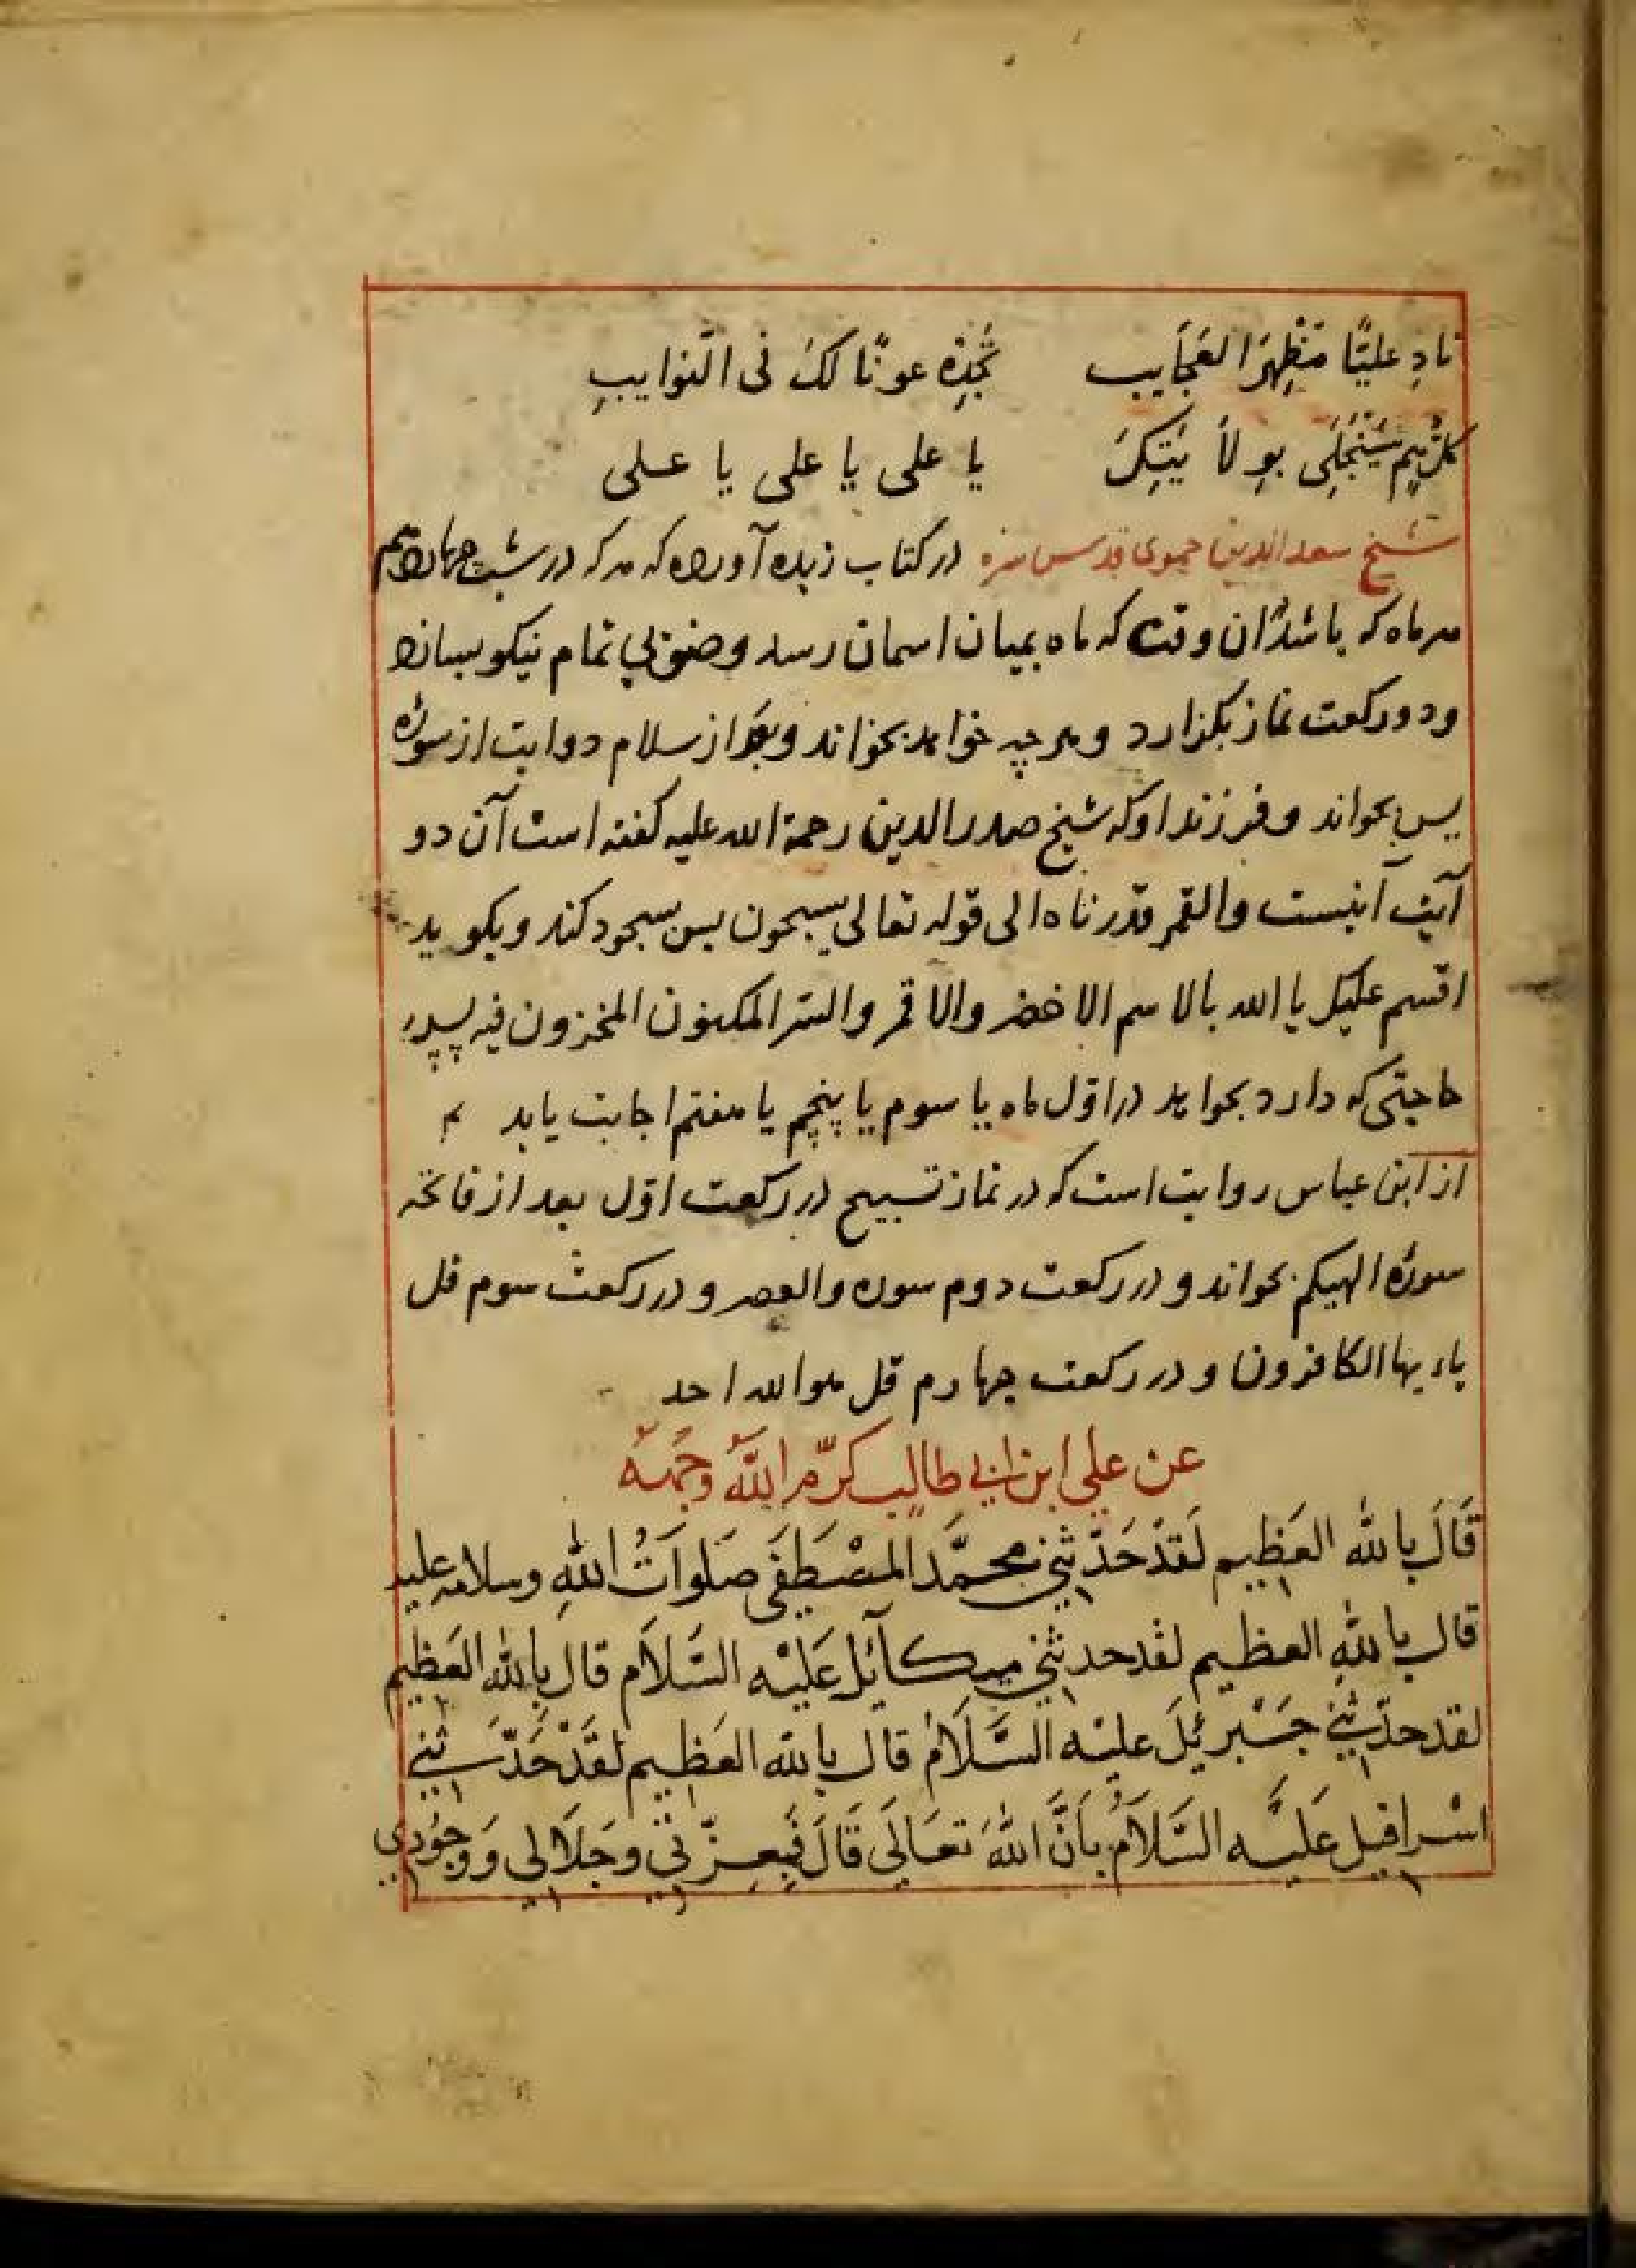 نادِ علیًّا مَظْهِرَ العَجَایِب تَجِدْهُ عونًا لکَ فی النّوایبِ
کلّ همٍّ سَیَنْجَلِی بِوِلاَیَتِکَ یا علی یا علی یا علی
شیخ سعد الدین حموی قدس سره در کتاب زبده آورده که هر که در شب چهاردهم
هر ماه که باشد آن وقت که ماه بمیان اسمان رسد وضوئی تمام نیکو بسازد
و دو رکعت نماز بکزارد و هر چه خواهد بخواند و بعد از سلام دو ایت از سوره
یس بخواند و فرزند او که شیخ صدر الدین رحمة الله علیه کفته است آن دو
آیت آنیست والقمر قدرناه الی قوله تعالی یسبحون پس سجود کند و بکوید
اقسم علیک یا الله بالاسم الاخضر والاقمر والسّر المکنون المخزون فیه پس هر
حاجتی که دارد بخواهد در اوّل ماه یا سوم یا پنچم یا هفتم اجابت یابد
از ابن عباس روایت است که در نماز تسبیح در رکعت اوّل بعد از فاتحه
سوره الهیکم بخواند و در رکعت دوم سوره والعصر و در رکعت سوم قل
یاءیها الکافرون و در رکعت چهارم قل هو الله احد
عن علی ابن ابی طالب کرّم اللهُ وجهَهُ
قَالَ بِالله العَظِیم لَقَدْ حَدَّثَنِی محمّد المصْطَفَی صَلَوَاتُ اللهِ وسلامه علیه
قال باللهِ العظیم لقد حدثنی میکآئیل عَلَیْه السَّلاَم قال باللهِ العَظِیم
لقد حدّثنِی جَبْرئیلَ علیْه السَّلاَمُ قال بالله العَظِیم لَقَدْ حَدَّثَنِی
اسْرافیل عَلَیْه السَّلاَمُ بِاَنَّ اللهَ تعَالَی قَالَ فَبِعِزَّتِی وجَلاَلِی وَوجُودِی